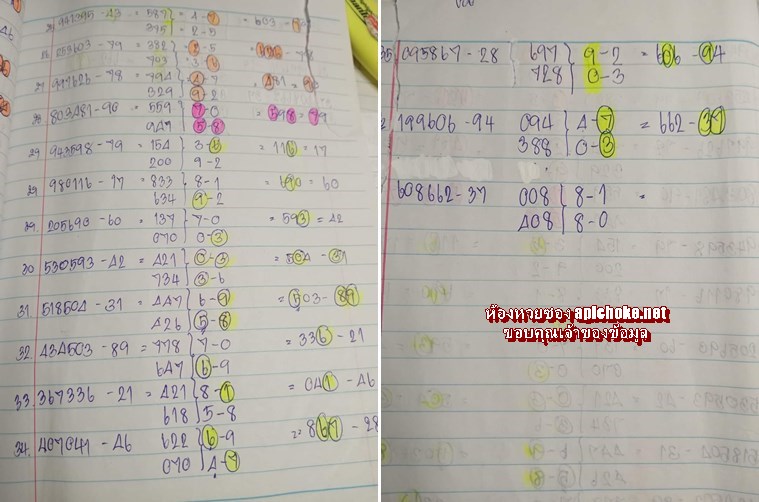 25 947395 - 43 = 587 } 4-7 = 603 - 79
375 } 2-5
26 053603 - 79 = 332 } 2-5
703 } 3-3
27 997626 - 78 = 794 } 4-7
329 } 9-2
28 803481 - 90 = 559 } 7-0 = 598 = 79
949 } 5-8
29 943598 - 79 = 154 } 3-8 = 116 = 17
200 9-2
29 980116 - 17 = 833 } 8-1 = 690 = 60
634 } 9-2
29. 205690 - 60 = 137 } 7-0 = 593 = 42
070 } 0-3
30 530593 - 42 = 421 } 0-3 = 504 - 31
734 } 3-6
31. 518504 - 31 = 447 } 6-9 = 503 - 89
426 } 5-8
32. 434503 - 89 = 778 } 7-0 = 336 - 21
647 } 6-9
33. 367336 - 21 = 421 } 8-1 = 041 - 46
618 } 5-8
34. 407041 - 46 622 } 6-9 = 867 - 28
070 } 4-7
35. 095867 - 28 697 } 9-2 = 606 - 94
728 } 0-3
199606 - 94 094 } 4-7 = 662 - 37
388 } 0-3
608662 - 37 008 } 8-1 =
408 } 8-0
ห้องหวยซอง apichoke.net
ขอบคุณเจ้าของข้อมูล